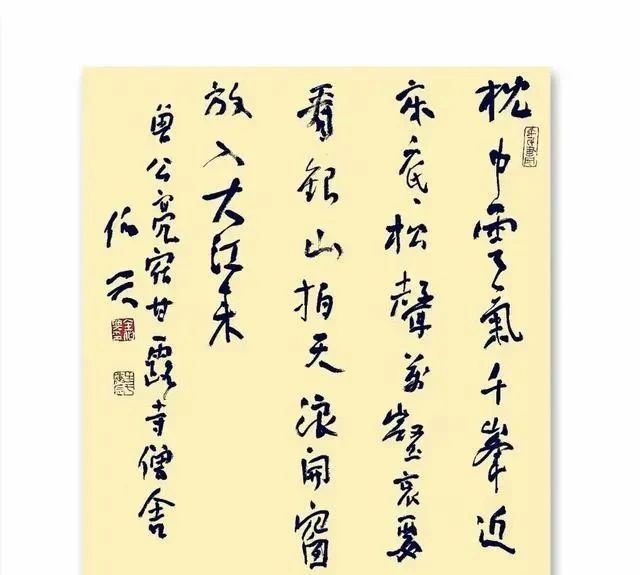 枕中雲氣千峯近
床底松聲萬壑哀要
看銀山拍天浪開窗
放入大江来
曾公亮宿甘露寺僧舍
伯